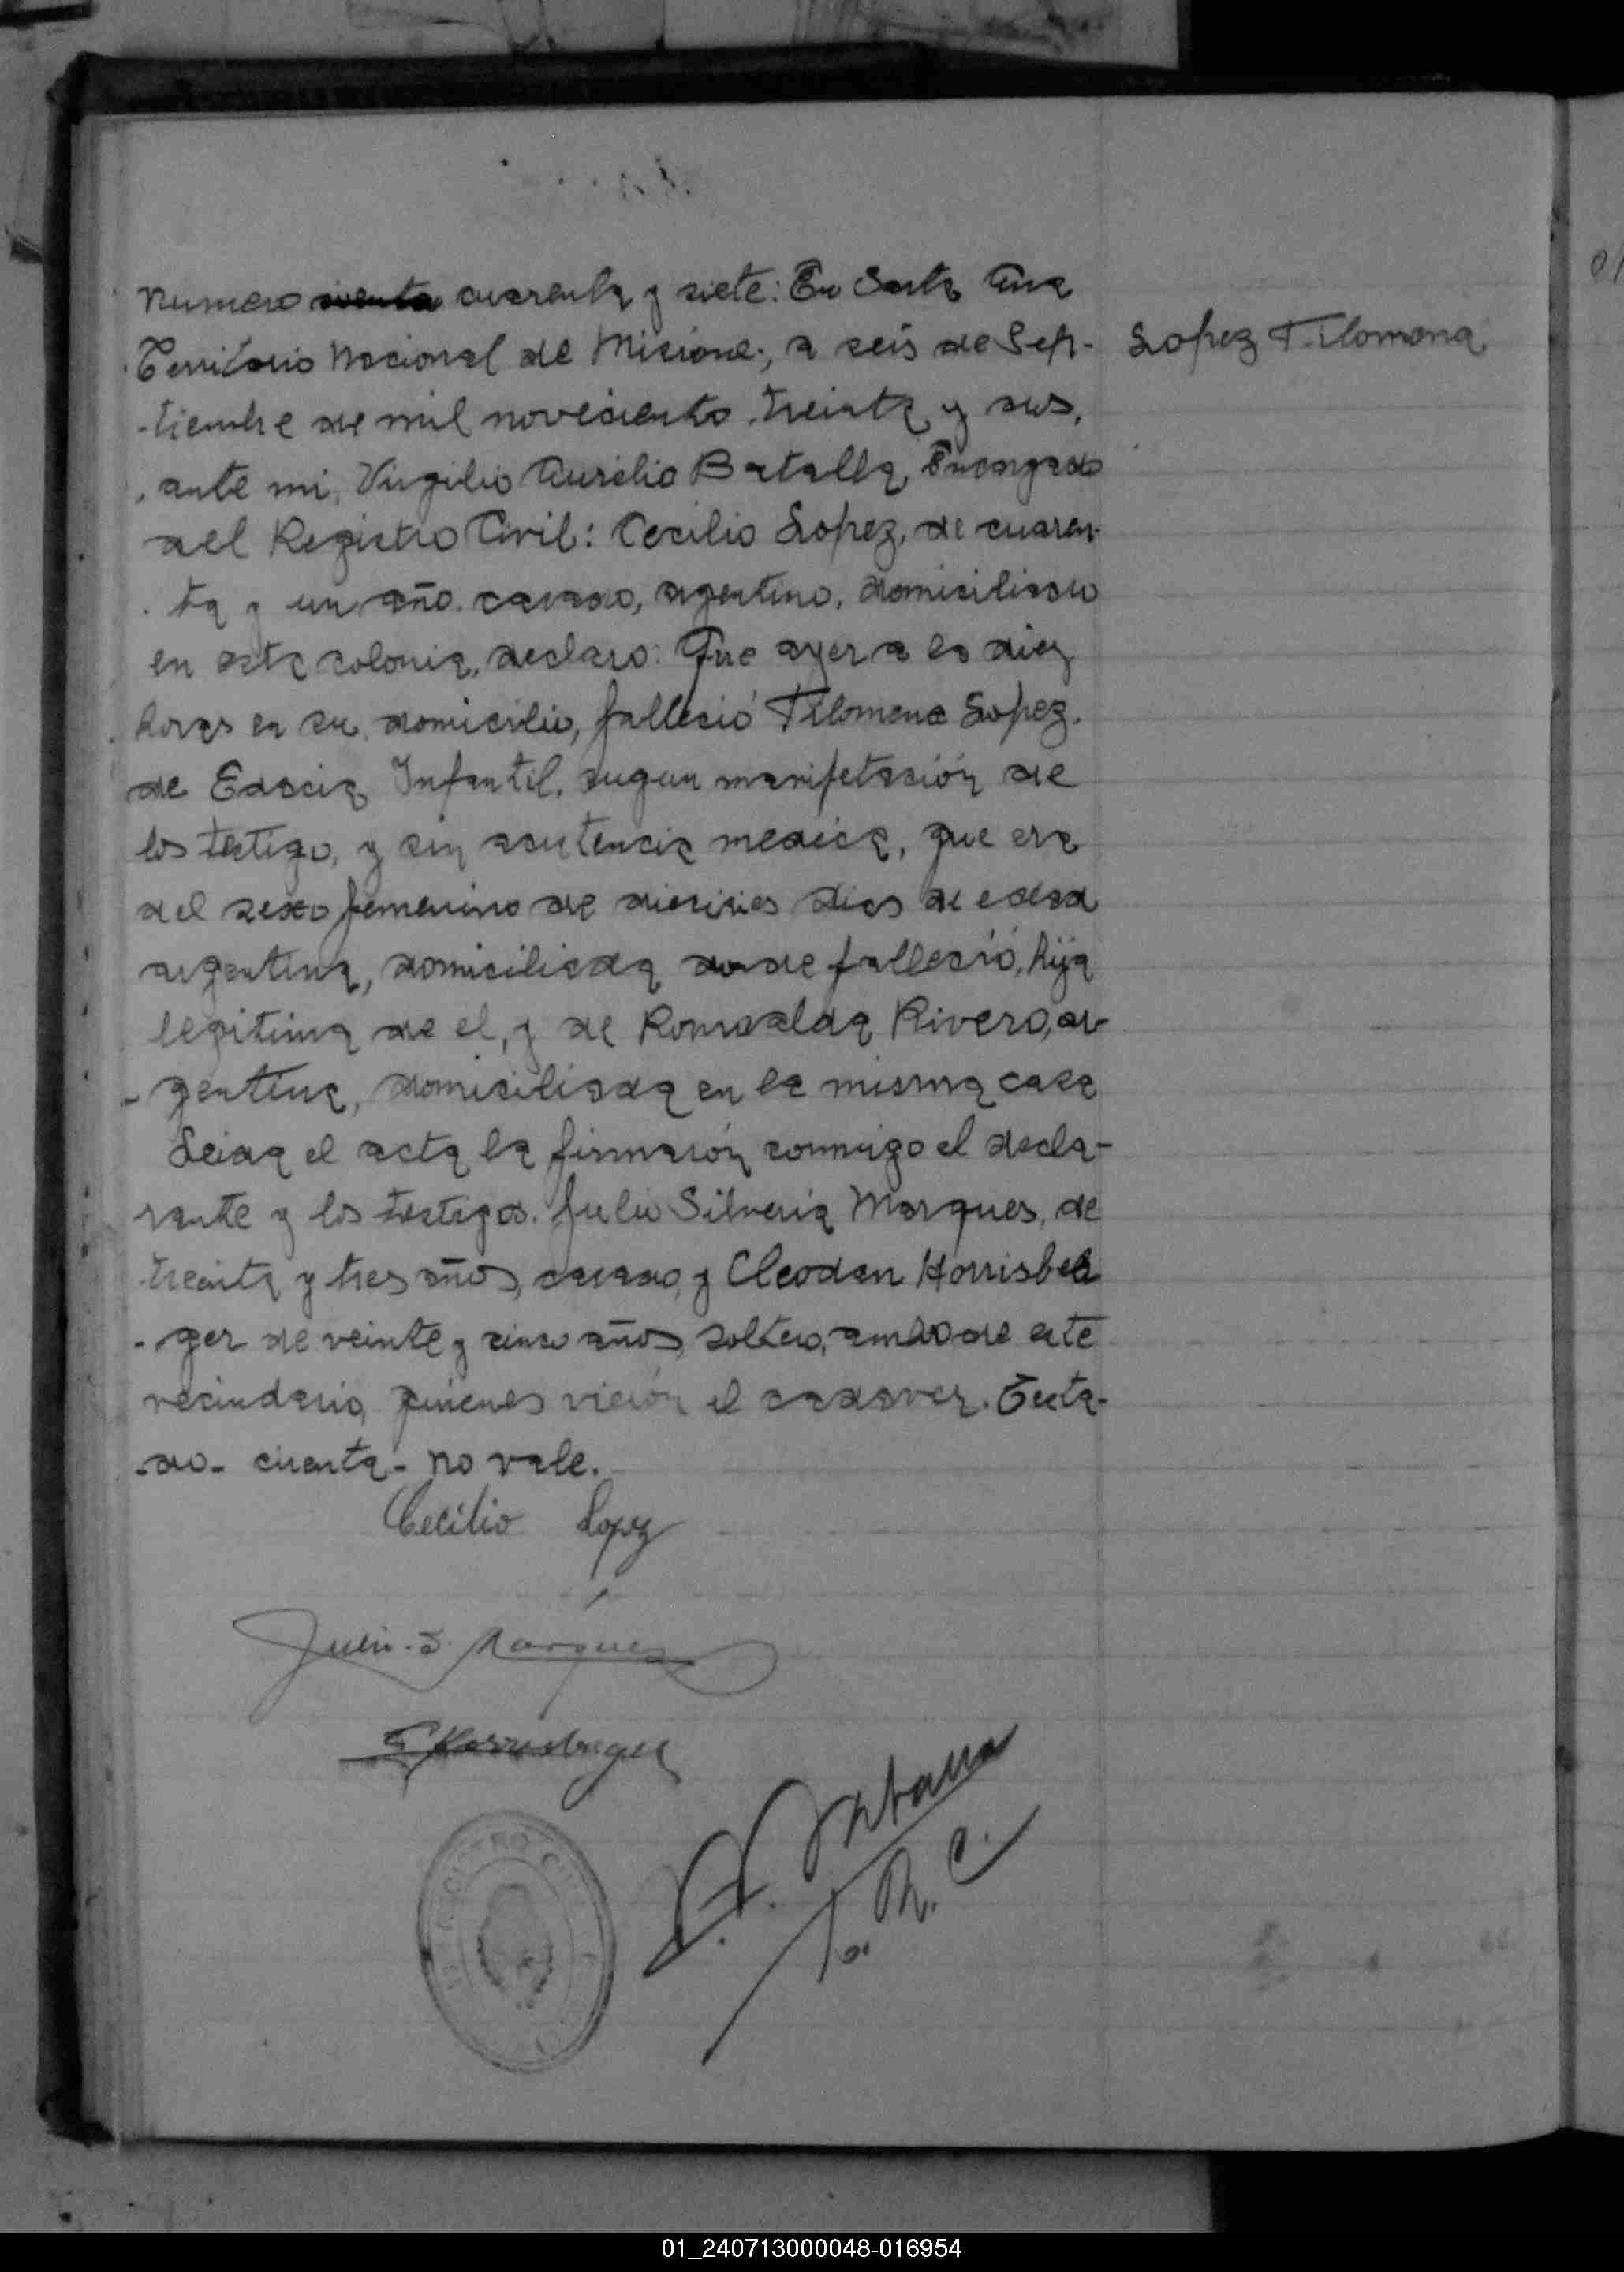 Numero cuarenta y siete: En Santa Ana
Lopez Filomena
Territorio Nacional de Misiones, a seis de Sep-
-tiembre de mil novecientos treinta y
ante mi, Virgilio Aurelio Batalla, Encargado
del Registro Civil: Cecilio Lopez, de cuaren-
ta y un año casado, argentino, domiciliado
en esta colonia, declaro: Que ayer a las diez
horas en su domicilio, falleció Filomena Lopez.
de Infantil, segun manifetación de
los testigo, y sin asistencia medica, que era
del sexo femenino de dias de edad
argentina, domiciliada donde falleció, hija
legitima de el, y de Romualda Rivero, ar-
- gentina, domiciliada en la misma casa
Leida el acta la firmarón conmigo el decla-
rante y los testigos. Julio Silveria Marques, de
treinta y tres años, casado, y Cleodan Horrisber
- ger de veinte y cinco años, soltero, ambos de este
vecindario, quienes vierón el cadaver. Testa-
-do- cuenta- no vale.
Cecilio Lopez
Julio. S. Marques
R. C.
REGISTRO CIVIL
01_240713000048-016954